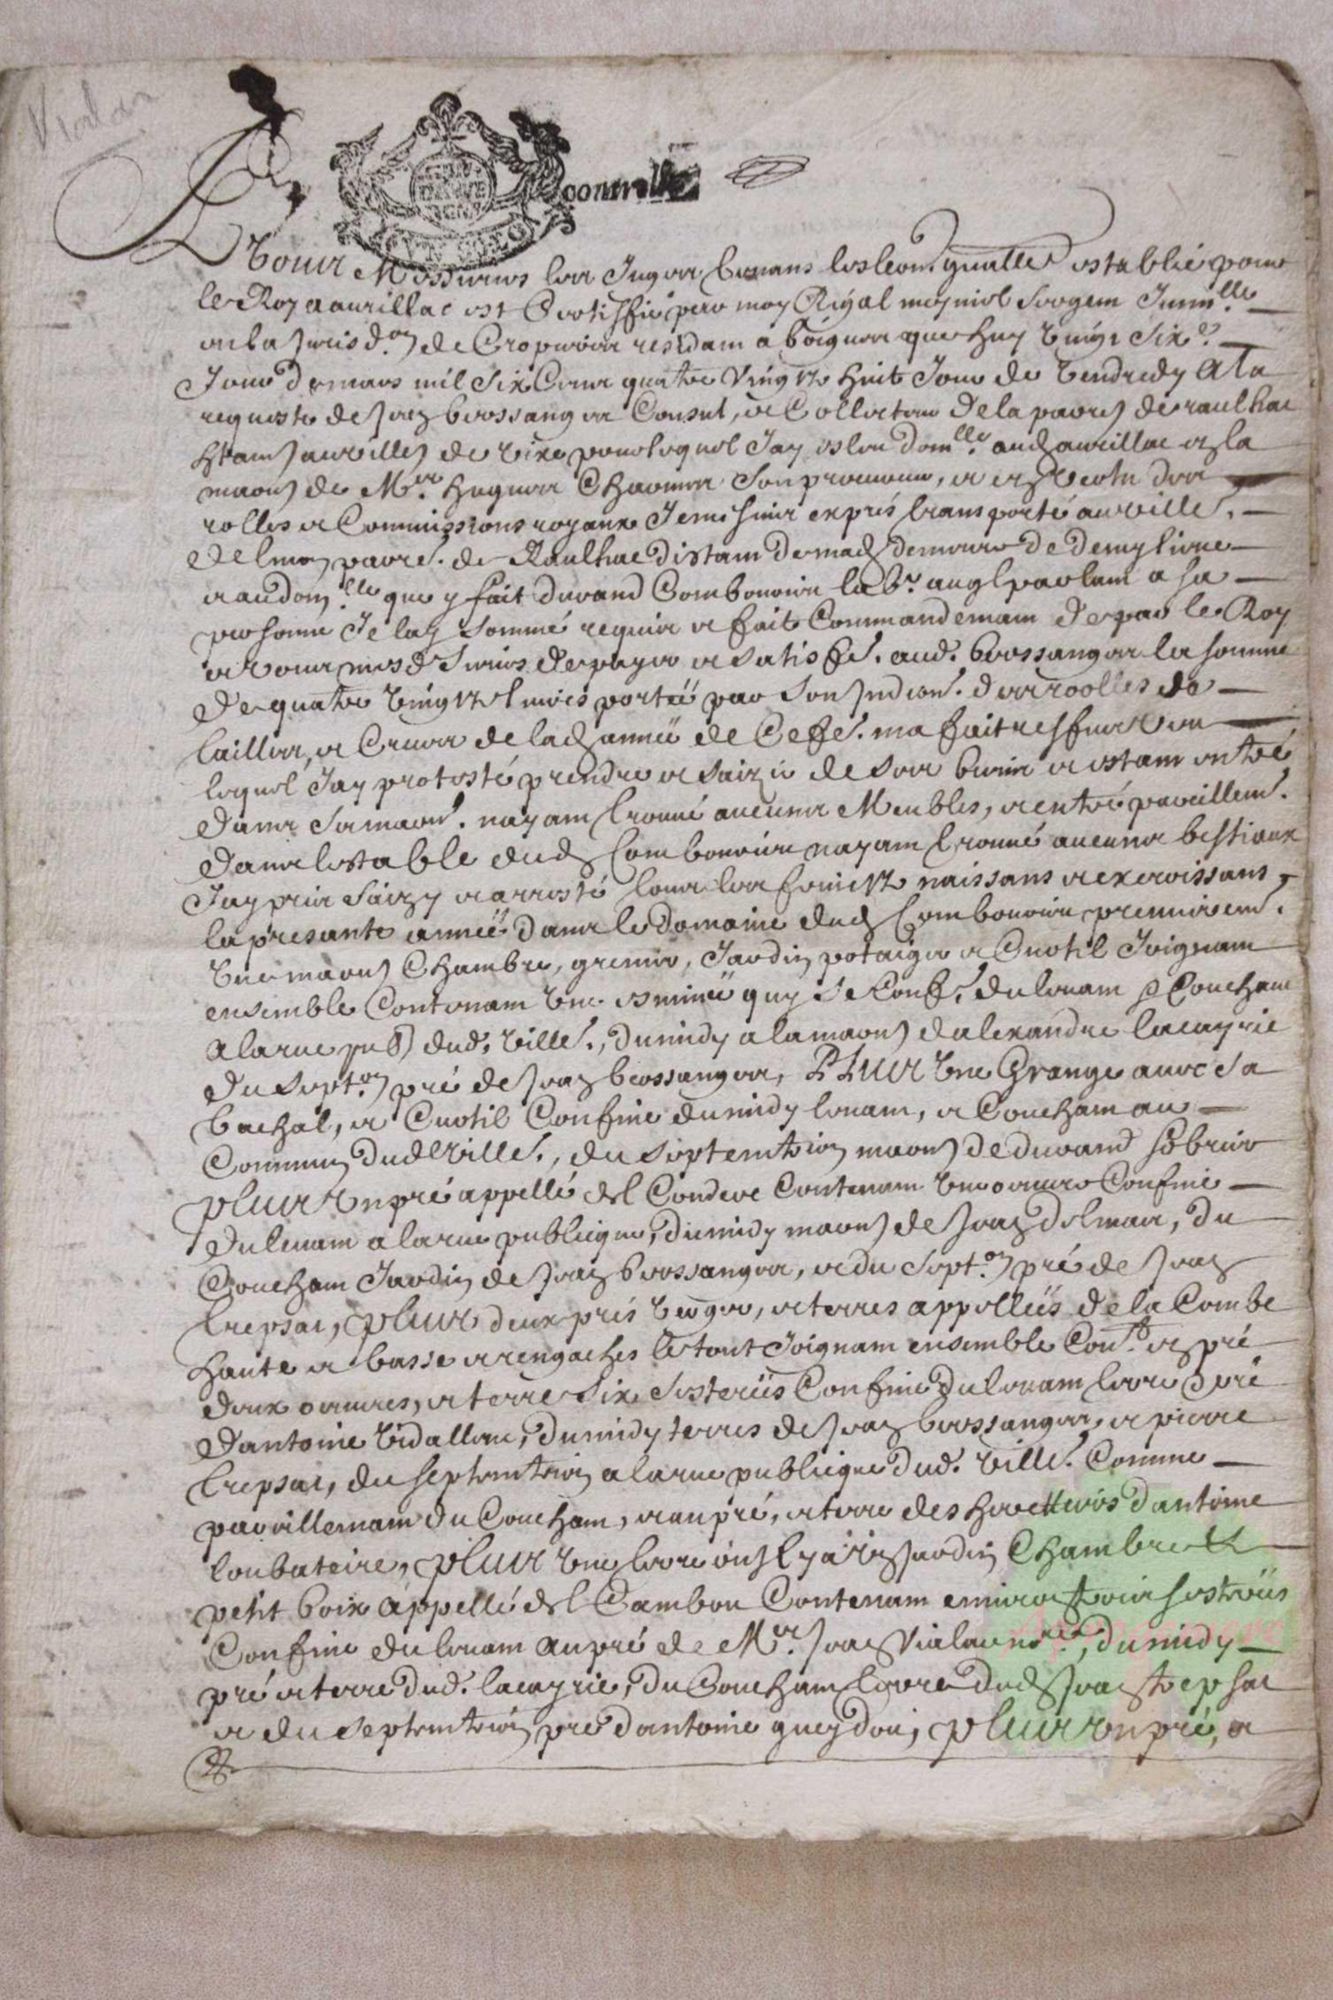 Vialar
controlle
A Vous Messieurs les Juges tenans leslection quelle establie pour
le Roy a aurillac est Certiffié par moy Rigal meyniol Sergen
en la Jurisd.on de Cropieres residam a que huy vingt Six.e
Jour de mars mil Six Cens quatre vingtz huit Jour de Vendredy A la
requeste de Jean brossanges Consul, et Collecteur de la parro de raulhac
du de vixe pour lequel Jay esleu dom.lle aud aurillac en la
maon de M.er Hugues Chaumer Son procureur, et en Vertu des
rolles et Commissions royaux Je me suis exprés transporté au Ville.
delmon parro. de Raulhac distam de mad demeure de demy lieue
et au dom.lle que y fait durand Combourieu lab.r auql parlam a sa
personne Je lay sommé requis et fait Commandemam de par le Roy
et vous mesd Sieurs de payer et Satisfe. aud. brossanges la somme
de quatre vingtz livres portée par Son Jndion. des roolles de
tailles, et Crues de lad année de Ce fe. ma fait reffus
lequel Jay protesté prendre et Saizie de Ses biens et estam entré
dans Sa maon. nayam trouvé aucuns Meubles, et entré pareillem.
dans lestable dud Combourieu nayam trouvé aucuns bestiaux
Jay pris Saizy et arresté tous les fruictz naissans et excroissans
la presante année dans le domaine dud Combourieu premierem.
Une maon Chambre, grenier, Jardin potaiger et Cuotil Joignam
ensemble Contenam une esminée quy Se Confe. du levam & Coucham
A la rue pub dud. Ville., du midy a la maon dalexandre lacayrie
du Sept.on pré de Jean brossanges, Plus Une Grange avec Sa
bachal, et Cuotil Confine du midy levam, et Coucham au
Commun dud Ville., du Septentrion maon de durand
plus un pré appellé del Condere Contenam une oeuvre Confine
du levam a la rue publicque, du midy maon de Jean delmas, du
Coucham Jardin de Jean brossanges, et du Sept.on pré de Jean
trepsat, plus deux prés verger, et terres appellées de la Combe
haute et basse et rengaches le tout Joignam ensemble Con.t en pré
deux oeuvres, et terre Six Sesterées Confine du levam terre et pré
dantoine Vidallenc, du midy terres de Jean brossanges, et pierre
trepsat, du Septentrion a la rue publicque dud. Ville. Comme
pareillemam du Coucham, et au pré, et terre des heretiers dantoine
loubateire, plus Une terre ou Jl y a Un Jardin Chambre et
petit boix appellé del Cambon Contenam environ trois sesterées
Confine du levam au pré de M.er Jean Vialar no.re, du midy
pré et terre dud. lacayrie, du Coucham terre dud Jean trepsat
et du Septentrion pré dantoine queydon, plus un pré, a